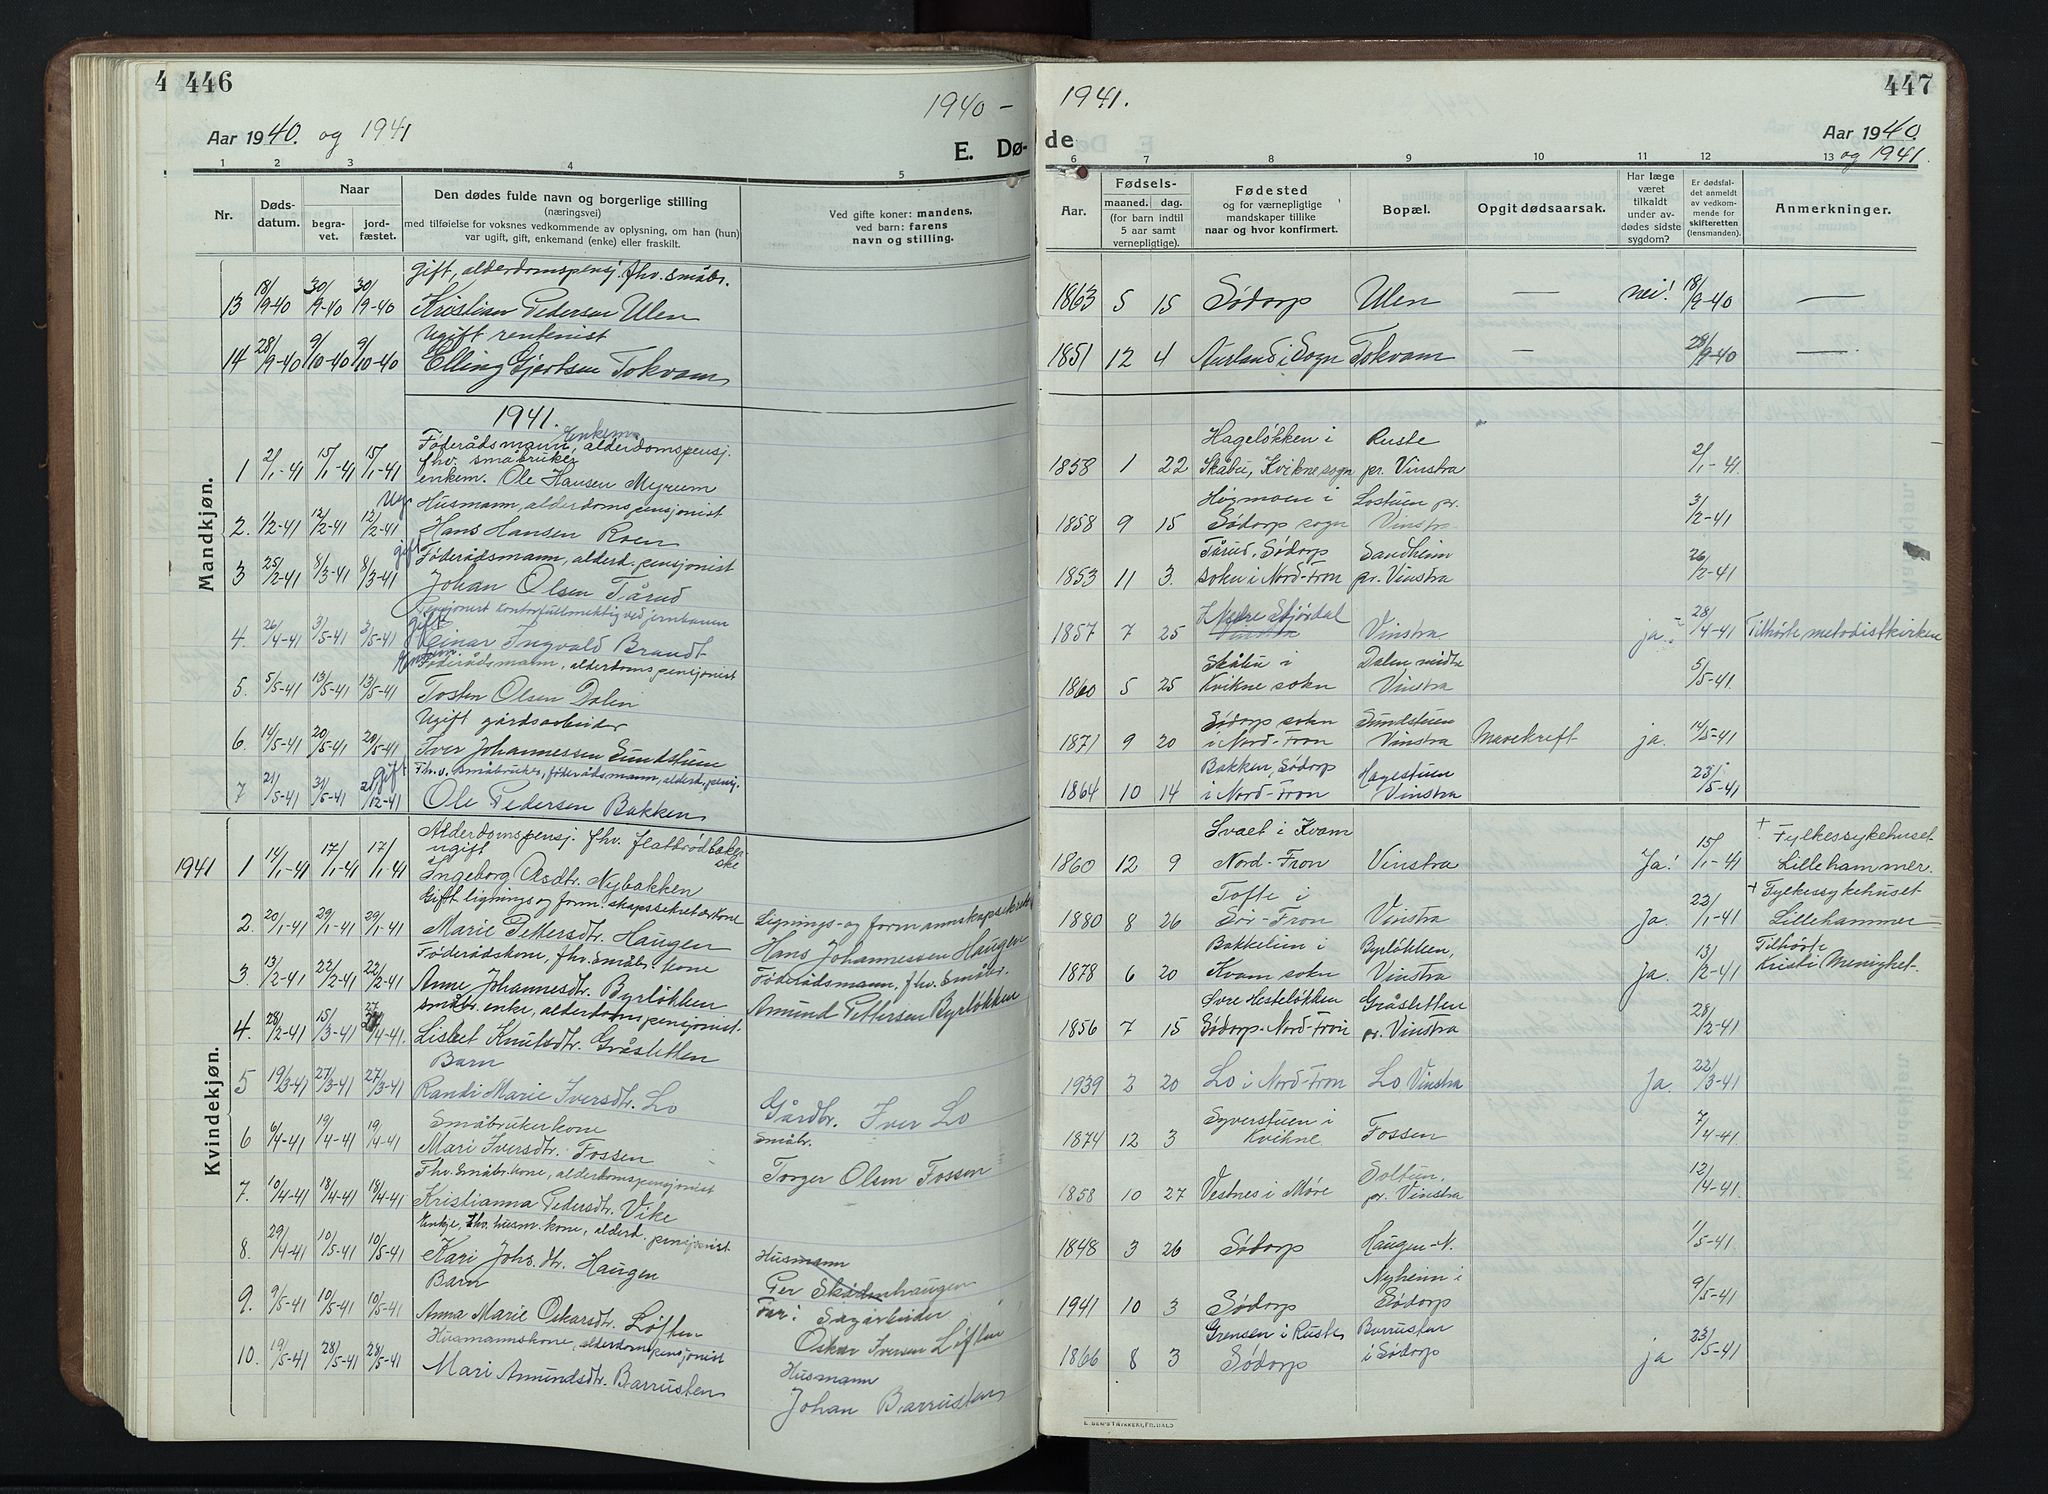 446
1940 - 1941.
447
Aar 1940. og 1941
E. Dø-
de
Aar 1940.
og 1941.
1 2 3 4 5 6 7 8 9 10 11 12 13
Nr.
Døds-
datum.
Naar
begra-
vet.
jord-
fæstet.
Den dødes fulde navn og borgerlige stilling
(næringsvei)
med tilføielse for voksnes vedkommende av oplysning, om han (hun)
var ugift, gift, enkemand (enke) eller fraskilt.
Ved gifte koner: mandens,
ved barn: farens
navn og stilling.
Aar.
Fødsels-
maaned. dag.
(for barn indtil
5 aar samt
vernepligtige).
Fødested
og for værnepligtige
mandskaper tillike
naar og hvor konfirmert.
Bopæl.
Opgit dødsaarsak.
Har læge
været
tilkaldt
under av-
dødes sidste
sygdom?
Er dødsfal-
det anmeldt
av vedkom-
mende for
skifteretten
(lensmanden).
Anmerkninger.
Mandkjøn.
Gift, alderdomspensj. fhv. småbr.
13 18/9-40 30/9-40 30/9-40 Kristian Pedersen Ulen 1863 5 15 Sødorp Ulen — nei! 18/9-40 —
Ugift rentenist
14 28/9-40 9/10-40 9/10-40 Elling Gjertsen Tokvam 1851 12 4 Aurland i Sogn Tokvam — 28/9-40 —
1941.
Enkem.
Føderådsmann, alderdomspensj. Hageløkken i Ruste
fhv. småbruker
1 2/1-41 15/1-41 15/1-41 enkem. Ole Hansen Myrum 1858 1 22 Skåbu, Kvikne sogn pr. Vinstra 2/1-41
Ug. Husmann, alderdomspensjonist Høgmoen i Lostuen pr.
2. 1/2-41 12/2-41 12/2-41 Hans Hansen Roen 1858 9 15 Sødorp sogn Vinstra 3/2-41
gift Føderådsmann, alderd. pensjonist Tårud, Sødorp Sandheim
3 25/2-41 8/3-41 8/3-41 Johan Olsen Tårud 1853 11 3. sokn i Nord-Fron pr. Vinstra 26/2-41
Pensjonert kontorfullmektig ved jernbanen Nedre Stjørdal
4. 26/4-41 3/5-41 3/5-41 gift Einar Ingvald Brandt 1857 7 25 Vinstra Vinstra ja. 28/4-41 Tilhørte metodistkirken
Enkem. Føderådsmann, alderdomspensjonist Skåbu i Dalen midtre
5. 5/5-41 13/5-41 13/5-41 Tosten Olsen Dalen 1860 5 25 Kvikne sokn Vinstra 5/5-41
Ugift gårdsarbeider Sødorp sokn Sundstuen
6. 14/5-41 20/5-41 20/5-41 Iver Johannessen Sundstuen 1871 9 20 i Nord-Fron Vinstra Mavekreft ja. 14/5-41
gift Fhv. småbruker, føderådsmann, alderd. pensj. Bakken, Sødorp Hagestuen
7 21/5-41 31/5-41 21/12-41 Ole Pedersen Bakken 1864 10 14 i Nord-Fron Vinstra 23/5-41
Kvindekjøn.
Alderdomspensj. fhv. flatbrødbakerske Svaet i Kvam + Fylkessykehuset
ugift
1941 1 14/1-41 17/1-41 17/1-41 Ingeborg Asdtr. Nybakken 1860 12 9 Nord-Fron Vinstra Ja! 15/1-41 Lillehammer.
Gift lignings og form. skapssekretærkone Tofte i + Fylkessykehuset
2. 20/1-41 29/1-41 29/1-41 Marie Pettersdtr. Haugen Lignings- og formannskapssekretær 1880 8 26 Sør-Fron Vinstra Ja. 22/1-41 Lillehammer
Hans Johannessen Haugen
Føderådskone, fhv. småbr. kone Bakkelien i Byrløkken, Tilhørte
3. 13/2-41 22/2-41 22/2-41 Anne Johannesdtr. Byrløkken Føderådsmann, fhv. småbr. 1878 6 20 Kvam sokn Vinstra Ja. 13/2-41 Kristi Menighet.
Amund Pettersen Byrløkken
småbr. enke, alderdomspensjonist. Øvre Hesteløkken Gråsletten
4. 28/2-41 15/3-41 27/4-41. Lisbet Knutsdtr. Gråsletten 1856 7 15 Sødorp. Nord-Fron pr. Vinstra 28/2-41
Barn
5 19/3-41 27/3-41 27/3-41 Randi Marie Iversdtr. Lo Gårdbr. Iver Lo 1939 2 20 Lo i Nord-Fron Lo Vinstra Ja. 22/3-41
Småbrukerkone Småbr. Syverstuen i
6 6/4-41 19/4-41 19/4-41 Mari Iversdtr. Fossen Torger Olsen Fossen 1874 12 3 Kvikne. Fossen 7/4-41.
Fhv. småbr. kone, alderdomspensjonist Soltun,
7. 10/4-41 18/4-41 18/4-41 Kristianna Pedersdtr. Vike 1858 10 27 Vestnes i Møre pr. Vinstra 12/4-41.
Enkje, fhv. husm. kone, alderd. pensjonist
8. 29/4-41 10/5-41 10/5-41 Kari Johs. dtr. Haugen Husmann 1848 3 26 Sødorp Haugen-N. 1/5-41.
Per Skådenhaugen
Barn Far: Sagarbeider Nyheim i
9. 9/5-41 10/5-41 10/5-41 Anna Marie Oskarsdtr. Løften Oskar Iversen Løften 1941 10 3 Sødorp Sødorp 9/5-41.
Husmannskone, alderdomspensjonist Husmann Grensen i Ruste Barrusten
10. 19/5-41 28/5-41 28/5-41 Mari Amundsdtr. Barrusten Johan Barrusten 1866 8 3 Sødorp i Sødorp ja 23/5-41